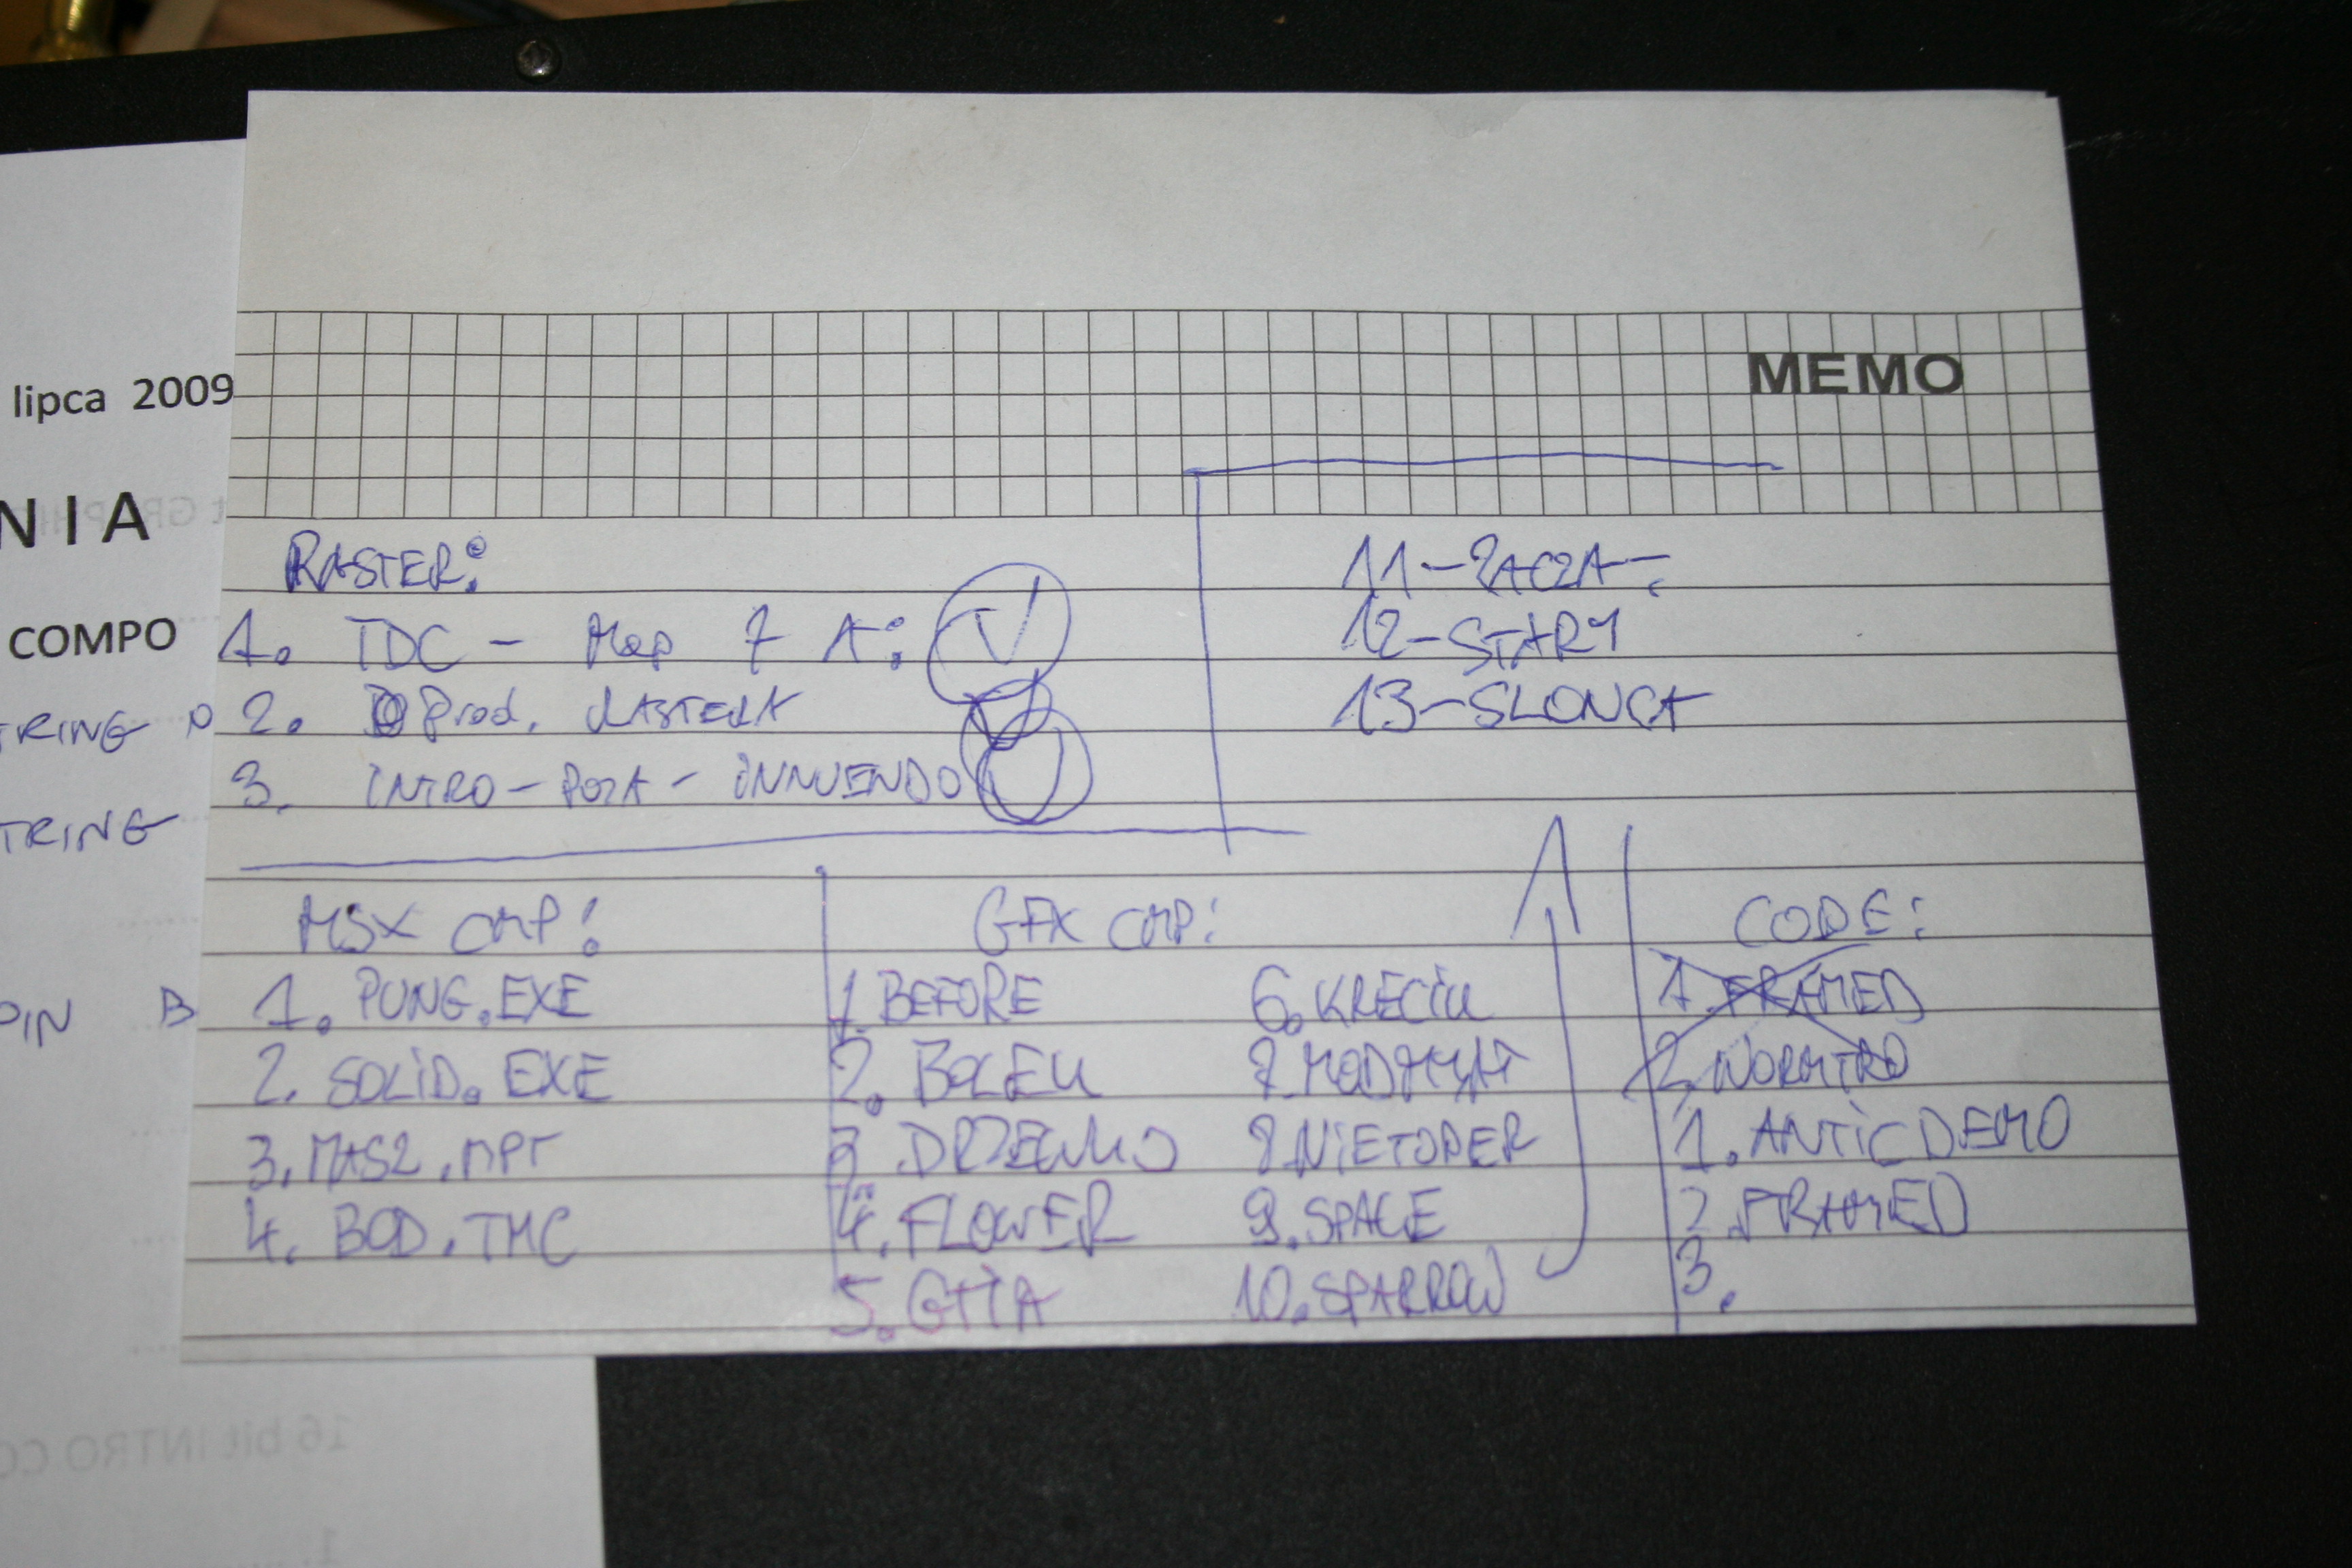 MEMO
lipca 2009
NIA
COMPO
TRING
TRING
PIN B
RASTER:
1. TDC - Map 7 A:
2. Prod. RASTERA
3. INTRO - POZA - INNUENDO
11 -
12 - START
13 - SLONCA
MSX CMP!
1. PUNG.EXE
2. SOLID.EXE
3. MAS2.MPT
4. BOD.TMC
GFX CMP:
1. BEFORE
2. BOLEK
3. DRZEWKO
4. FLOWER
5. GITA
6. KRECIK
7.
8. NIETOPER
9. SPACE
10. SPARROW
CODE:
1. FRAMED
2. NORMTRO
1. ANTICDEMO
2. FRAMED
3.
16 bit INTRO CO